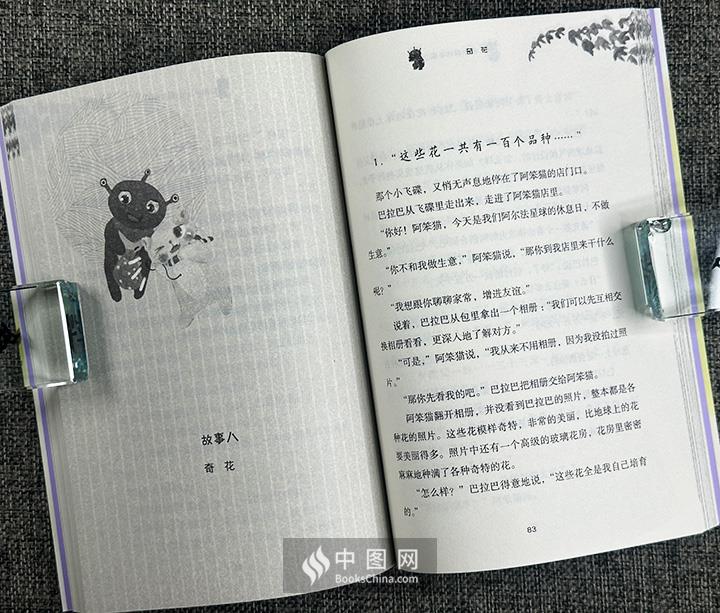 故事八
奇花
奇花
1. “这些花一共有一百个品种……”
那个小飞碟，又悄无声息地停在了阿笨猫的店门口。
巴拉巴从飞碟里走出来，走进了阿笨猫店里。
“你好！阿笨猫，今天是我们阿尔法星球的休息日，不做
生意。”
“你不和我做生意，”阿笨猫说，“那你到我店里来干什么
呢？”
“我想跟你聊聊家常，增进友谊。”
说着，巴拉巴从包里拿出一个相册：“我们可以先互相交
换相册看看，更深入地了解对方。”
“可是，”阿笨猫说，“我从来不用相册，因为我没拍过照
片。”
“那你先看我的吧。”巴拉巴把相册交给阿笨猫。
阿笨猫翻开相册，并没看到巴拉巴的照片，整本都是各
种花的照片。这些花模样奇特，非常的美丽，比地球上的花
要美丽得多。照片中还有一个高级的玻璃花房，花房里密密
麻麻地种满了各种奇特的花。
“怎么样？”巴拉巴得意地说，“这些花全是我自己培育
的。”
83
中图网
BooksChina.com